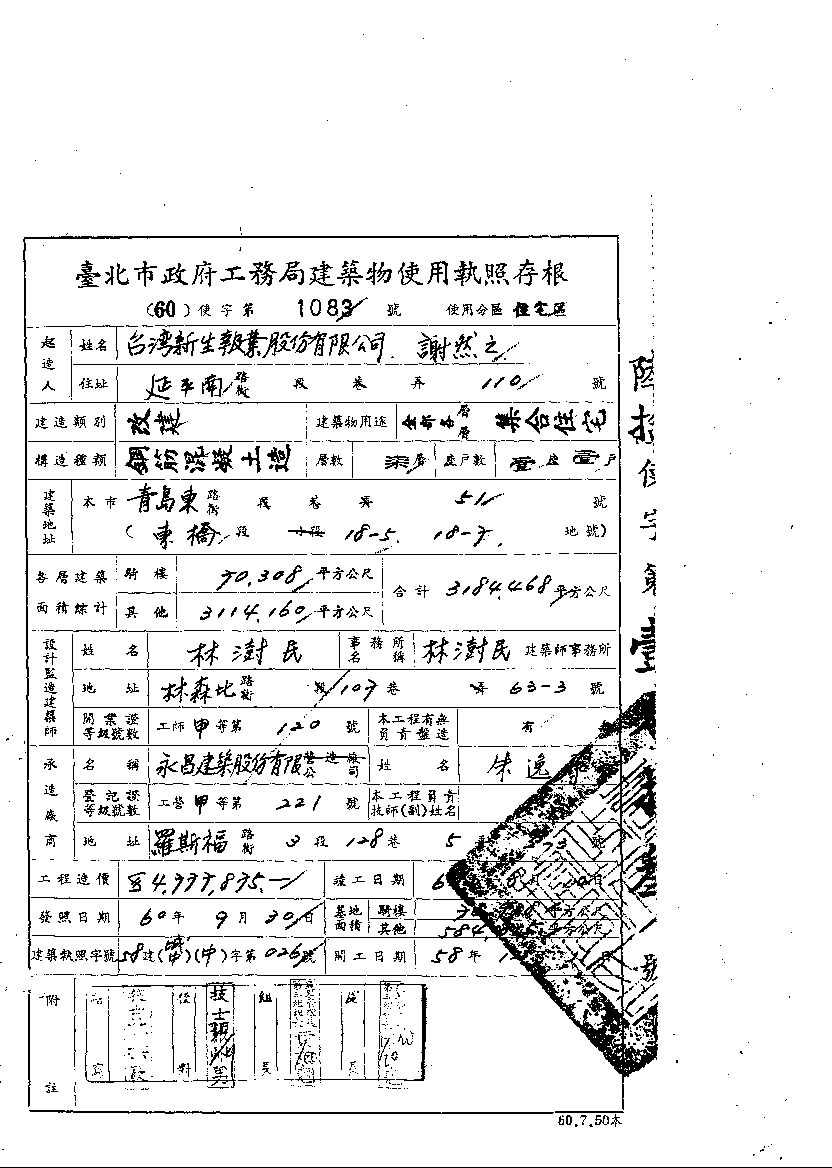 臺北市政府工務局建築物使用執照存根
(60)使字第 1083 號 使用分區 住宅區
起造人 姓名 台湾新生報業股份有限公司 謝然之
住址 延平南 路街 段 巷 弄 110 號
建造類別 改建 建築物用途 全部各層層 集合住宅
構造種類 鋼筋混凝土造 層數 柒層 座戶數 座 戶
建築地址 本市 青島東 路街 段 巷 弄 51 號
(東橋 段 小段 18-5. 18-7. 地號)
各層建築面積綜計 騎樓 70.308 平方公尺 合計 3184.468 平方公尺
其他 3114.160 平方公尺
設計監造建築師 姓名 林澍民 事務所名稱 林澍民 建築師事務所
地址 林森北 路街 段 107 巷 弄 63-3 號
開業證等級號數 工師 甲 等第 120 號 本工程有無負責監造 有
承造廠商 名稱 永昌建築股份有限 營造廠公司 姓名 朱逸
登記證等級號數 工營 甲 等第 221 號 本工程負責技師(副)姓名
地址 羅斯福 路街 3 段 128 巷 5 73 號
工程造價 4,777,835.- 竣工日期 6 月 日
發照日期 60 年 9 月 30 日 基地面積 騎樓 平方公尺
其他 584. 平方公尺
建築執照字號 58 建(中)字第 026 號 開工日期 58 年 1 月 11 日
附註
技士
組長
陸拾使字第壹
60.7.50本